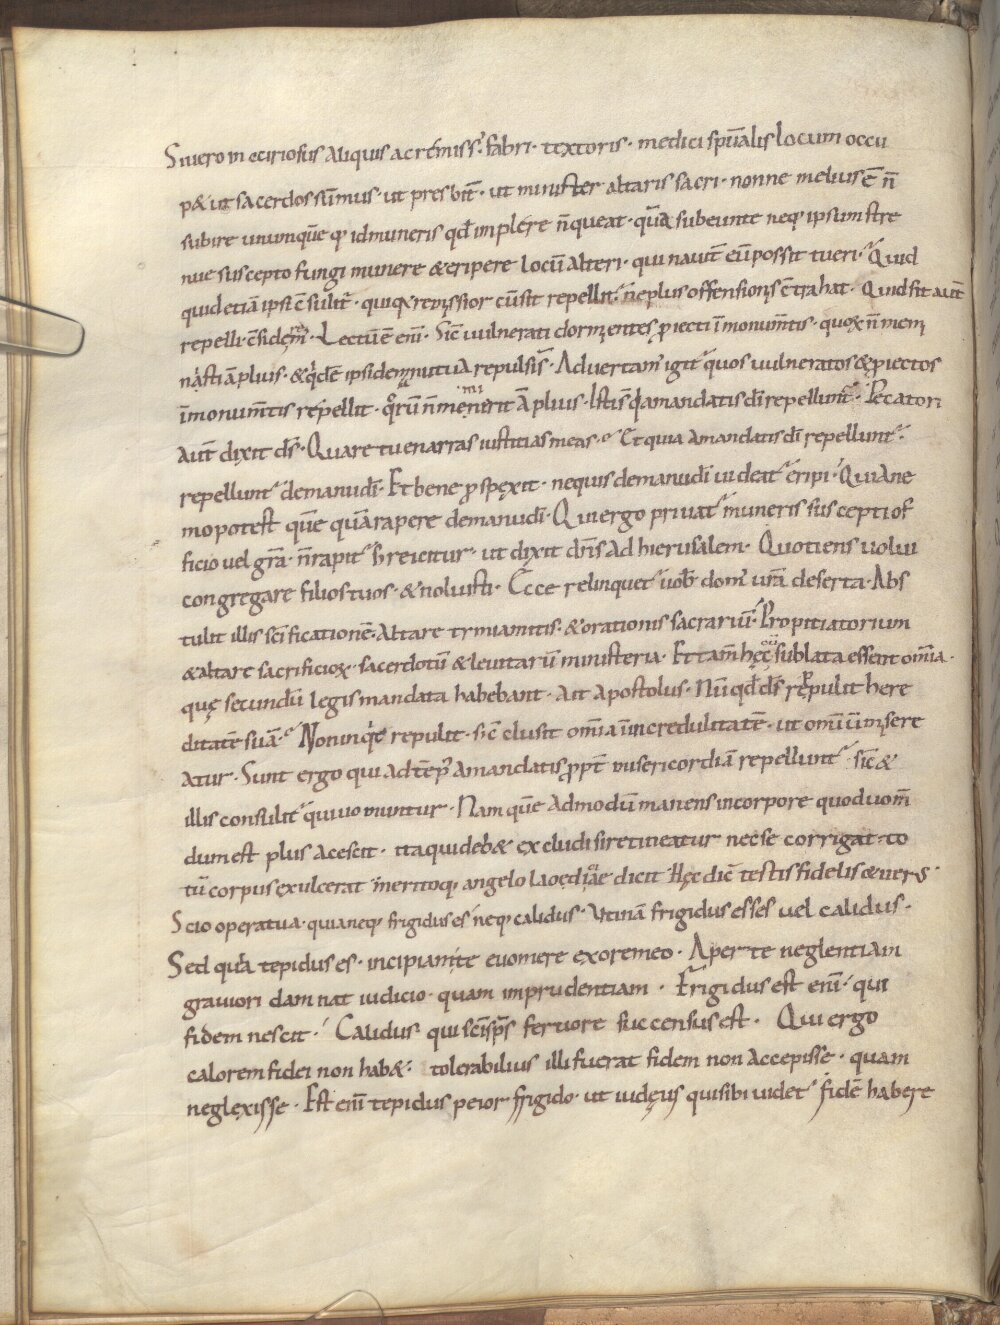 Si uero in eciriosus aliquis acremiss᷒· fabri· textoris· medici sp̄ualis locum occu
p& ut sacerdos sūmus· ut presbit̄· ut minister altaris sacri· nonne melius ē n̄
subire unumquē q; id muneris qd̄ implere n̄ queat· quā subeunte neq; ipsum stre
nue suscepto fungi munere & eripere locū alteri· qui nauit̄ eū possit tueri· Quid
quid etiā ipsi c̄sulit̄· quiq;a remissior cū sit repellit· ne plus offensionis c̄trahat· Quid sit aut̄
repelli· c̄siderem᷒· Lectū ē enī· Sic̄ uulnerati dormientes ꝓiecti ī monum̄tis· quoꝝ n̄ mem
nasti āplius· & qd̄ē ipsi de manu tua repulsi s̄· Aduertam᷒ igit᷒ quos uulneratos & ꝓiectos
ī monum̄tis repellit· quorū n̄ meminerit āplius· Isti s̄ q̄ a mandatis dī repellunt᷒· Peccatori
aut̄ dixit ds̄· Quare tu enarras iustitias meas· Et quia a mandatis dī repellunt᷒·
repellunt᷒ de manu dī· Et bene ꝓspexit· nequis de manu dī uideat᷒ eripi· Quia ne
mo potest quē quā rapere de manu dī· Qui ergo priuat᷒ muneris suscepti of
ficio uel gr̄a· n̄ rapit᷒ s; reicitur· ut dixit dn̄s ad hierusalem· Quotiens uolui
congregare filios tuos· & noluisti· Ecce relinquet᷒ uob̄ dom᷒ ur̄a deserta· Abs
tulit illis sc̄ificationē· Altare tymiamitis· & orationis sacrariū· Propitiatorium
& altare sacrificioꝝ· sacerdotū & leuitarū ministeria· Et tam̄ hęc cū sublata essent om̄ia·
quę secundū legis mandata habebant· Ait apostolus· Nū qd̄ ds̄ reppulit here
ditatē suā· Non unq̄e repulit· s; c̄clusit om̄ia ī incredulitatē· ut om̄iū misere
atur· Sunt ergo qui ad tēp᷒ a mandatis ꝓpt̄ misericordiā repellunt᷒ sic̄ &
illis consulit᷒ qui uo muntur· Nam quē admodū manens in corpore quod uom̄
dum est plus acescit· ita qui deb& excludi si retineatur necse corrigat· to
tū corpus exulcerat meritoq; angelo laoędiciae dicit Hęc dic̄ testis fidelis & uers·
Scio opera tua· quia neq; frigidus es neq; calidus· Utinā frigidus esses uel calidus·
Sed quia tepidus es· incipiam te euomere ex ore meo· Aperte neglentiam
grauiori damnat iudicio· quam imprudentiam· Frigidus est enī· qui
fidem nescit· Calidus· qui sc̄i sp̄s feruore succensus est· Qui ergo
calorem fidei non hab&· tolerabilius illi fuerat fidem non accepisse· quam
neglexisse· Est enī tepidus peior frigido· ut iudęus qui sibi uidet᷒ fidē habere